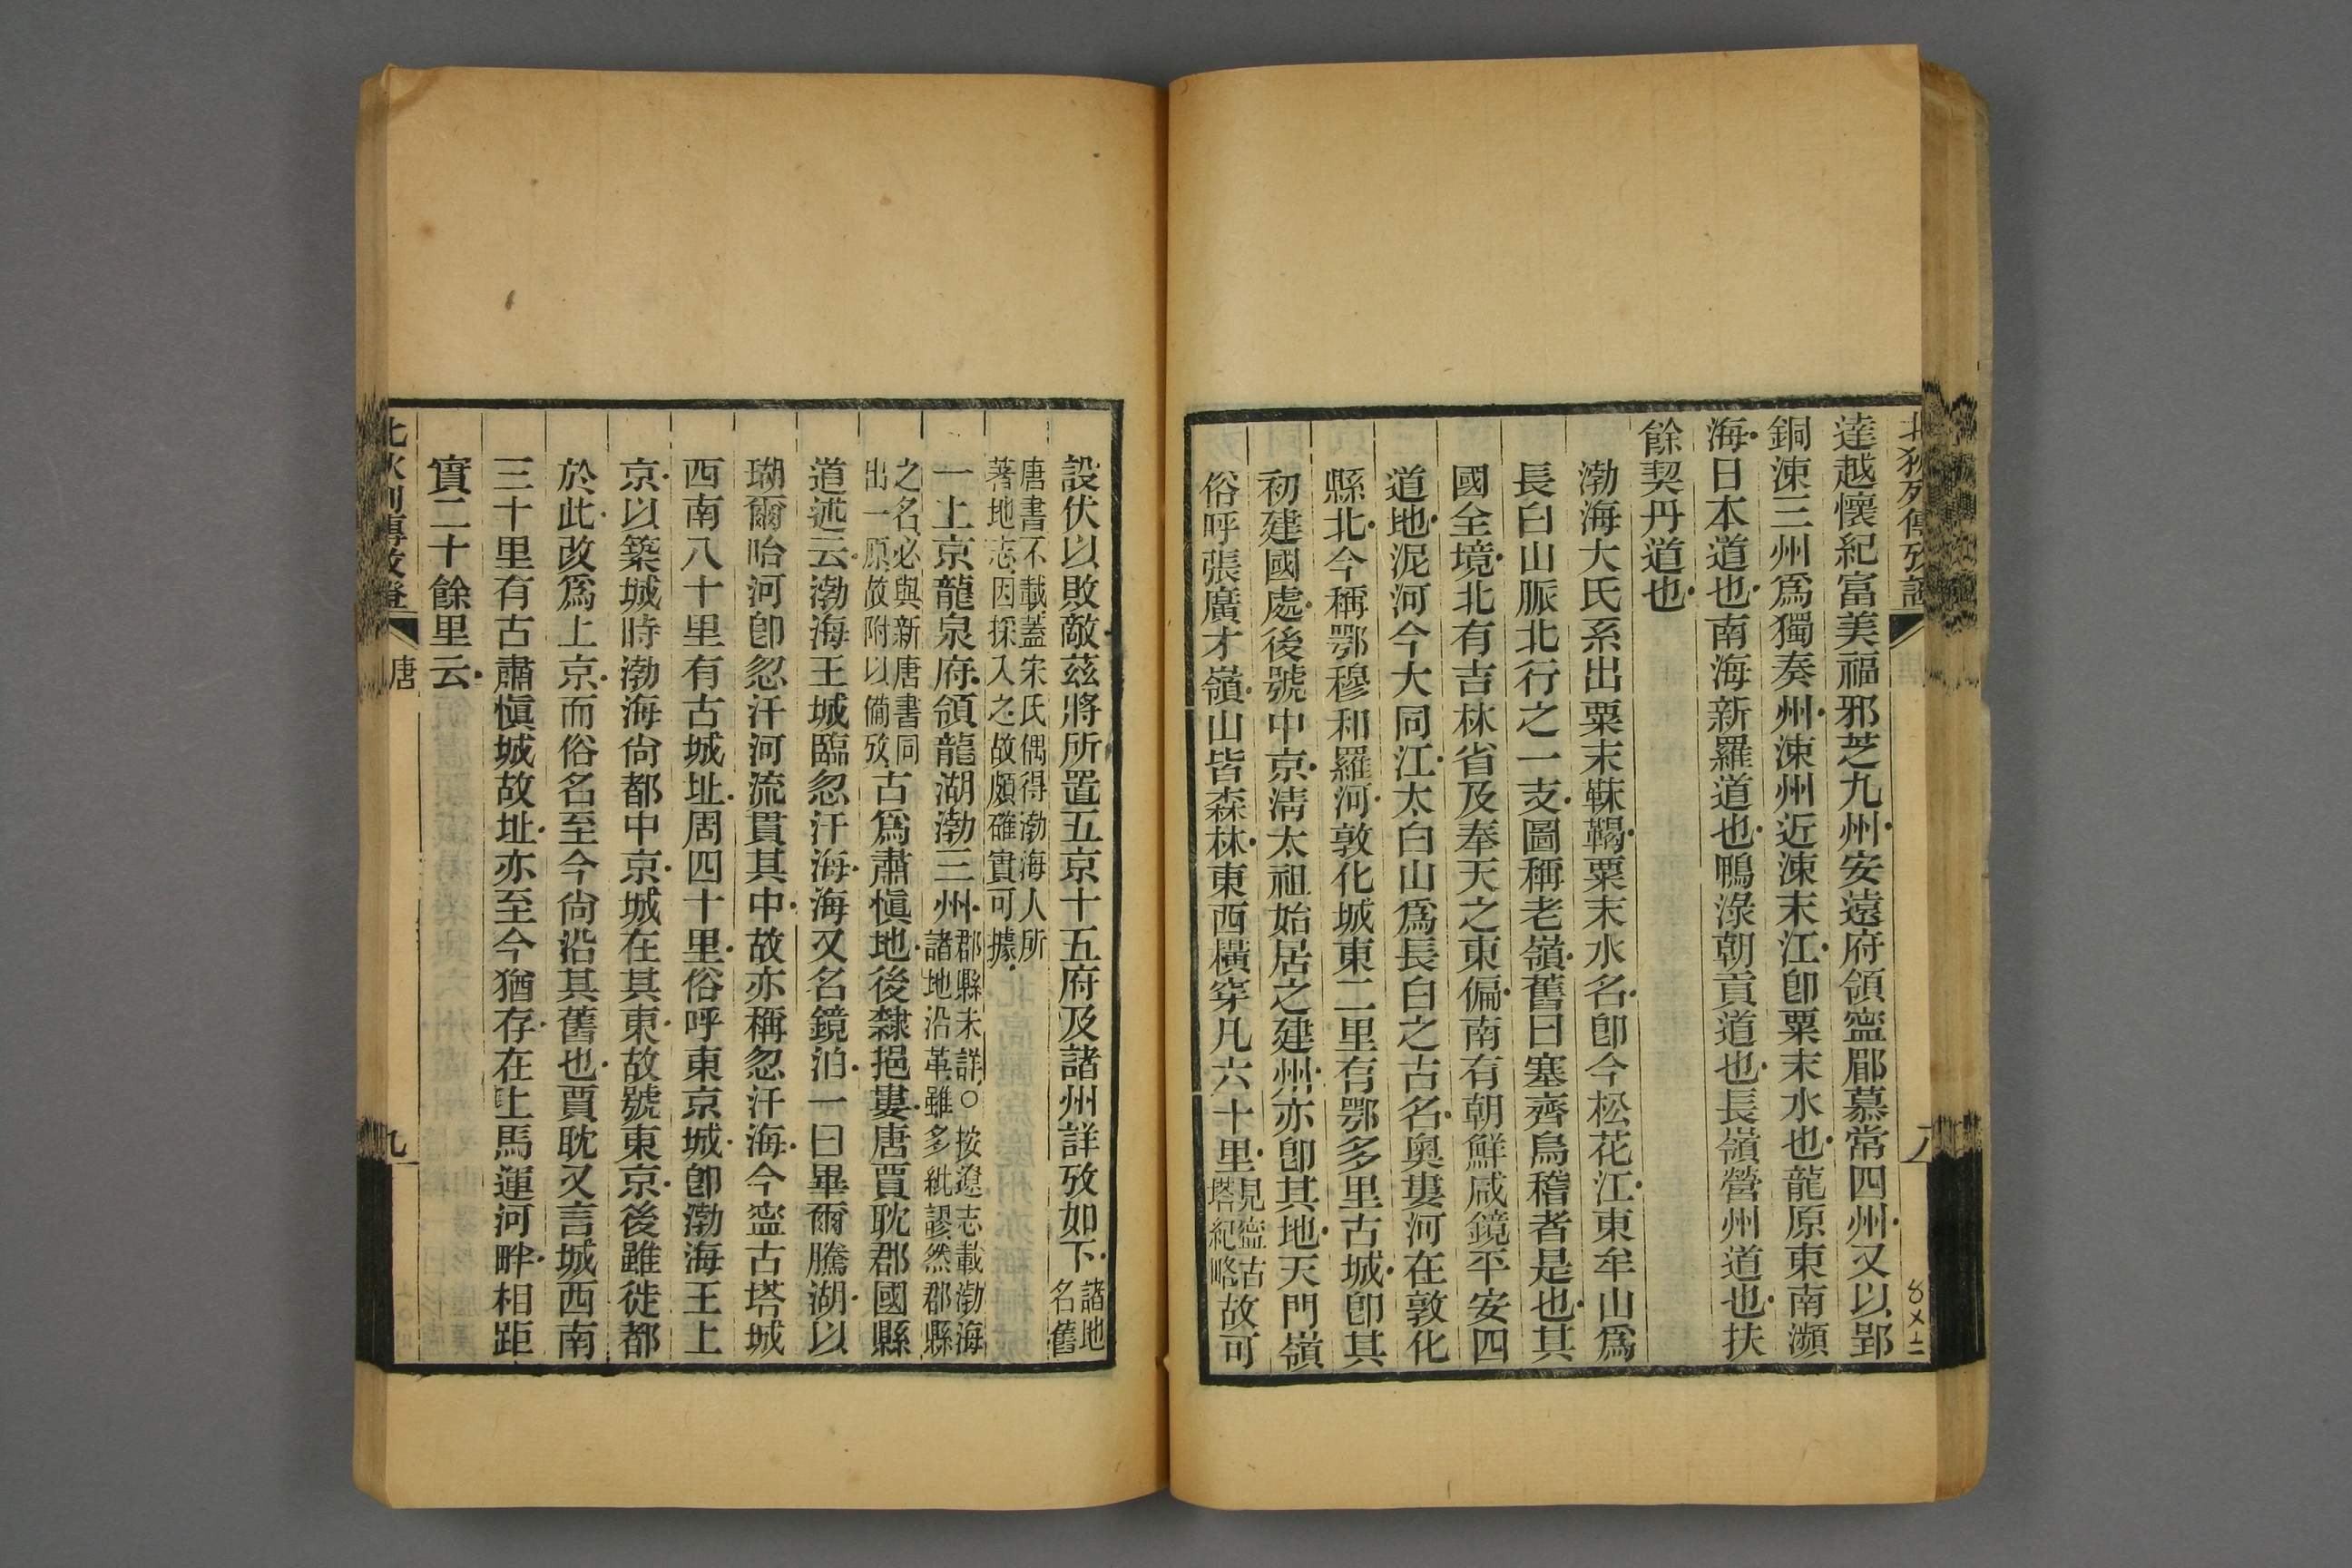 達越懷紀富美福邪芝九州安遠府領寍郿慕常四州又以郢
銅涑三州爲獨奏州涑州近涑末江卽粟末水也龍原東南瀕
海日本道也南海新羅道也鴨淥朝貢道也長嶺營州道也扶
餘契丹道也
渤海大氏系出粟末靺鞨粟末水名卽今松花江東牟山爲
長白山脈北行之一支圖稱老嶺舊曰塞齊烏稽者是也其
國全境北有吉林省及奉天之東偏南有朝鮮咸鏡平安四
道地泥河今大同江太白山爲長白之古名奧婁河在敦化
縣北今稱鄂穆和羅河敦化城東二里有鄂多里古城卽其
初建國處後號中京淸太祖始居之建州亦卽其地天門嶺
俗呼張廣才嶺山皆森林東西橫穿凡六十里見寍古塔紀略故可
設伏以敗敵茲將所置五京十五府及諸州詳攷如下諸地名舊
唐書不載蓋宋氏偶得渤海人所
著地志因採入之故頗確實可據
一上京龍泉府領龍湖渤三州郡縣未詳○按遼志載渤海諸地沿革雖多紕謬然郡縣
之名必與新唐書同出一原故附以備攷古爲肅愼地後隸挹婁唐賈耽郡國縣
道述云渤海王城臨忽汗海海又名鏡泊一曰畢爾騰湖以
瑚爾哈河卽忽汗河流貫其中故亦稱忽汗海今寍古塔城
西南八十里有古城址周四十里俗呼東京城卽渤海王上
京以築城時渤海尙都中京城在其東故號東京後雖徙都
於此改爲上京而俗名至今尙沿其舊也賈耽又言城西南
三十里有古肅愼城故址亦至今猶存在上馬運河畔相距
實二十餘里云
唐
九